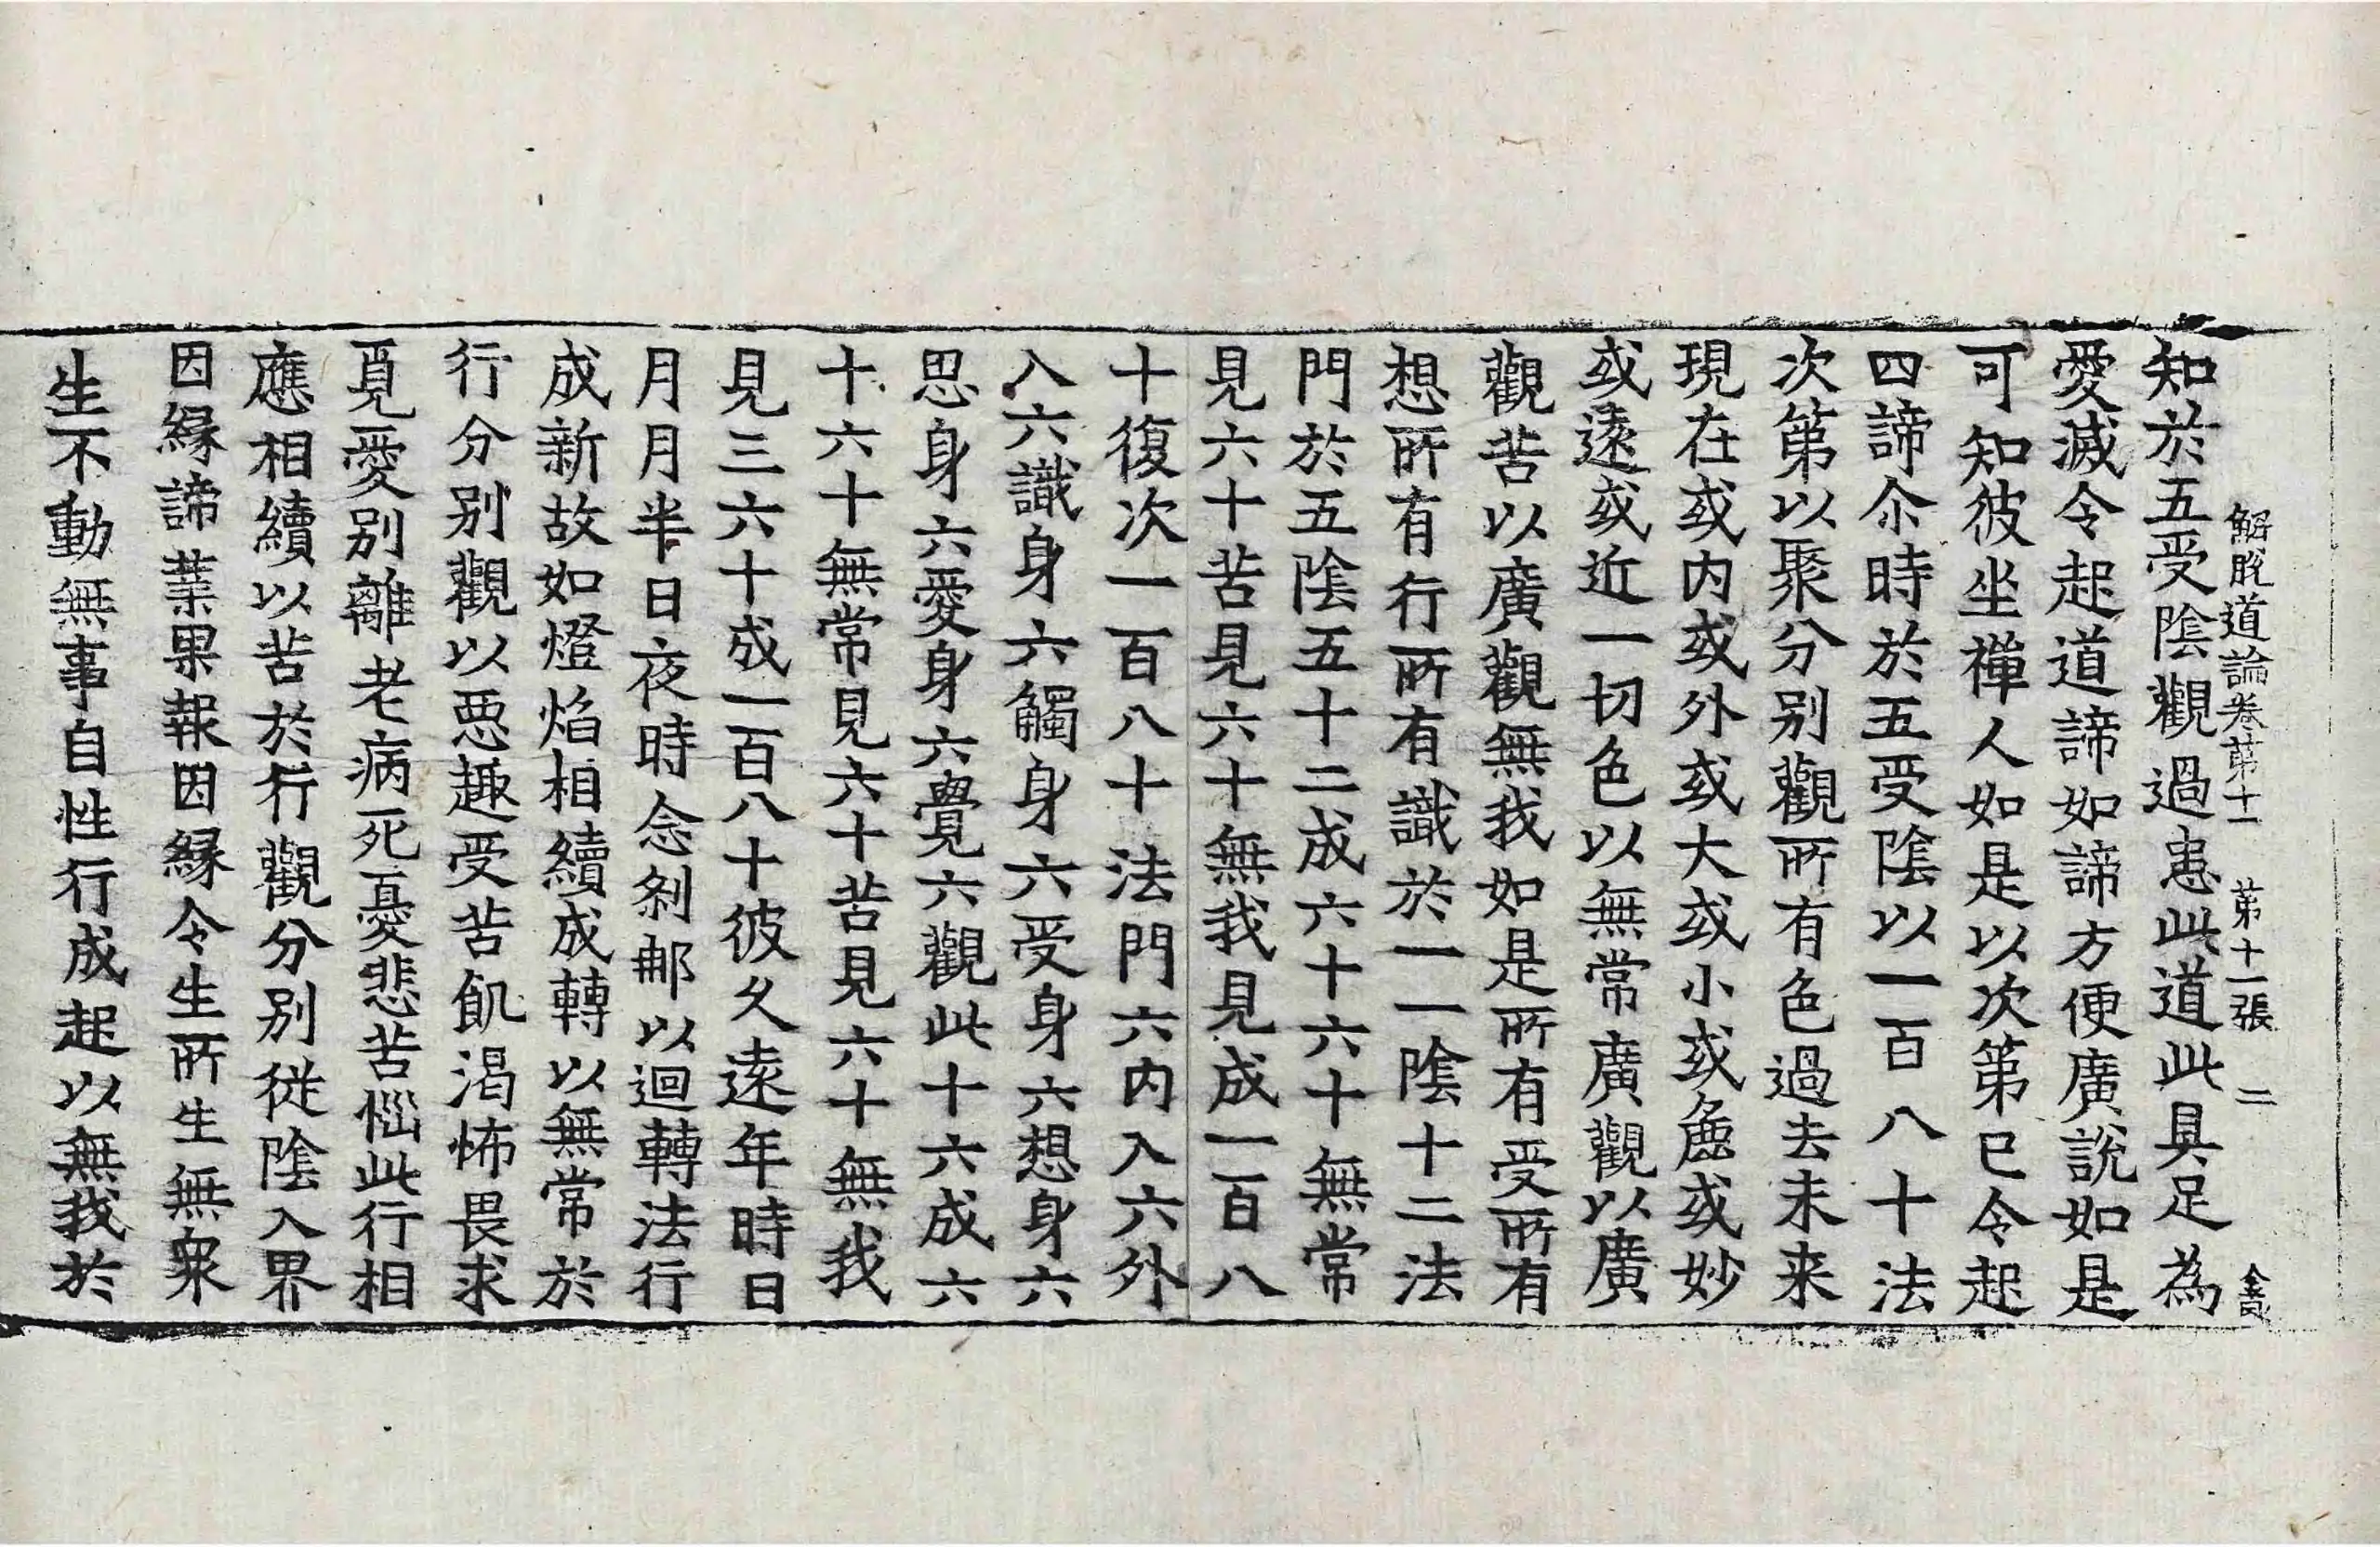 解脫道論卷第十一 第十一張 二
知於五受陰觀過患此道此具足為
愛滅令起道諦如諦方便廣說如是
可知彼坐禪人如是以次第已令起
四諦尒時於五受陰以一百八十法
次第以聚分別觀所有色過去未来
現在或内或外或大或小或麁或妙
或遠或近一切色以無常廣觀以廣
觀苦以廣觀無我如是所有受所有
想所有行所有識於一一陰十二法
門於五陰五十二成六十六十無常
見六十苦見六十無我見成一百八
十復次一百八十法門六内入六外
入六識身六觸身六受身六想身六
思身六愛身六覺六觀此十六成六
十六十無常見六十苦見六十無我
見三六十成一百八十彼久遠年時日
月月半日夜時念剎那以迴轉法行
成新故如燈焰相續成轉以無常於
行分別觀以惡趣受苦飢渴怖畏求
覓愛別離老病死憂悲苦惱此行相
應相續以苦於行觀分別從陰入界
因緣諦業果報因緣令生所生無衆
生不動無事自性行成起以無我於